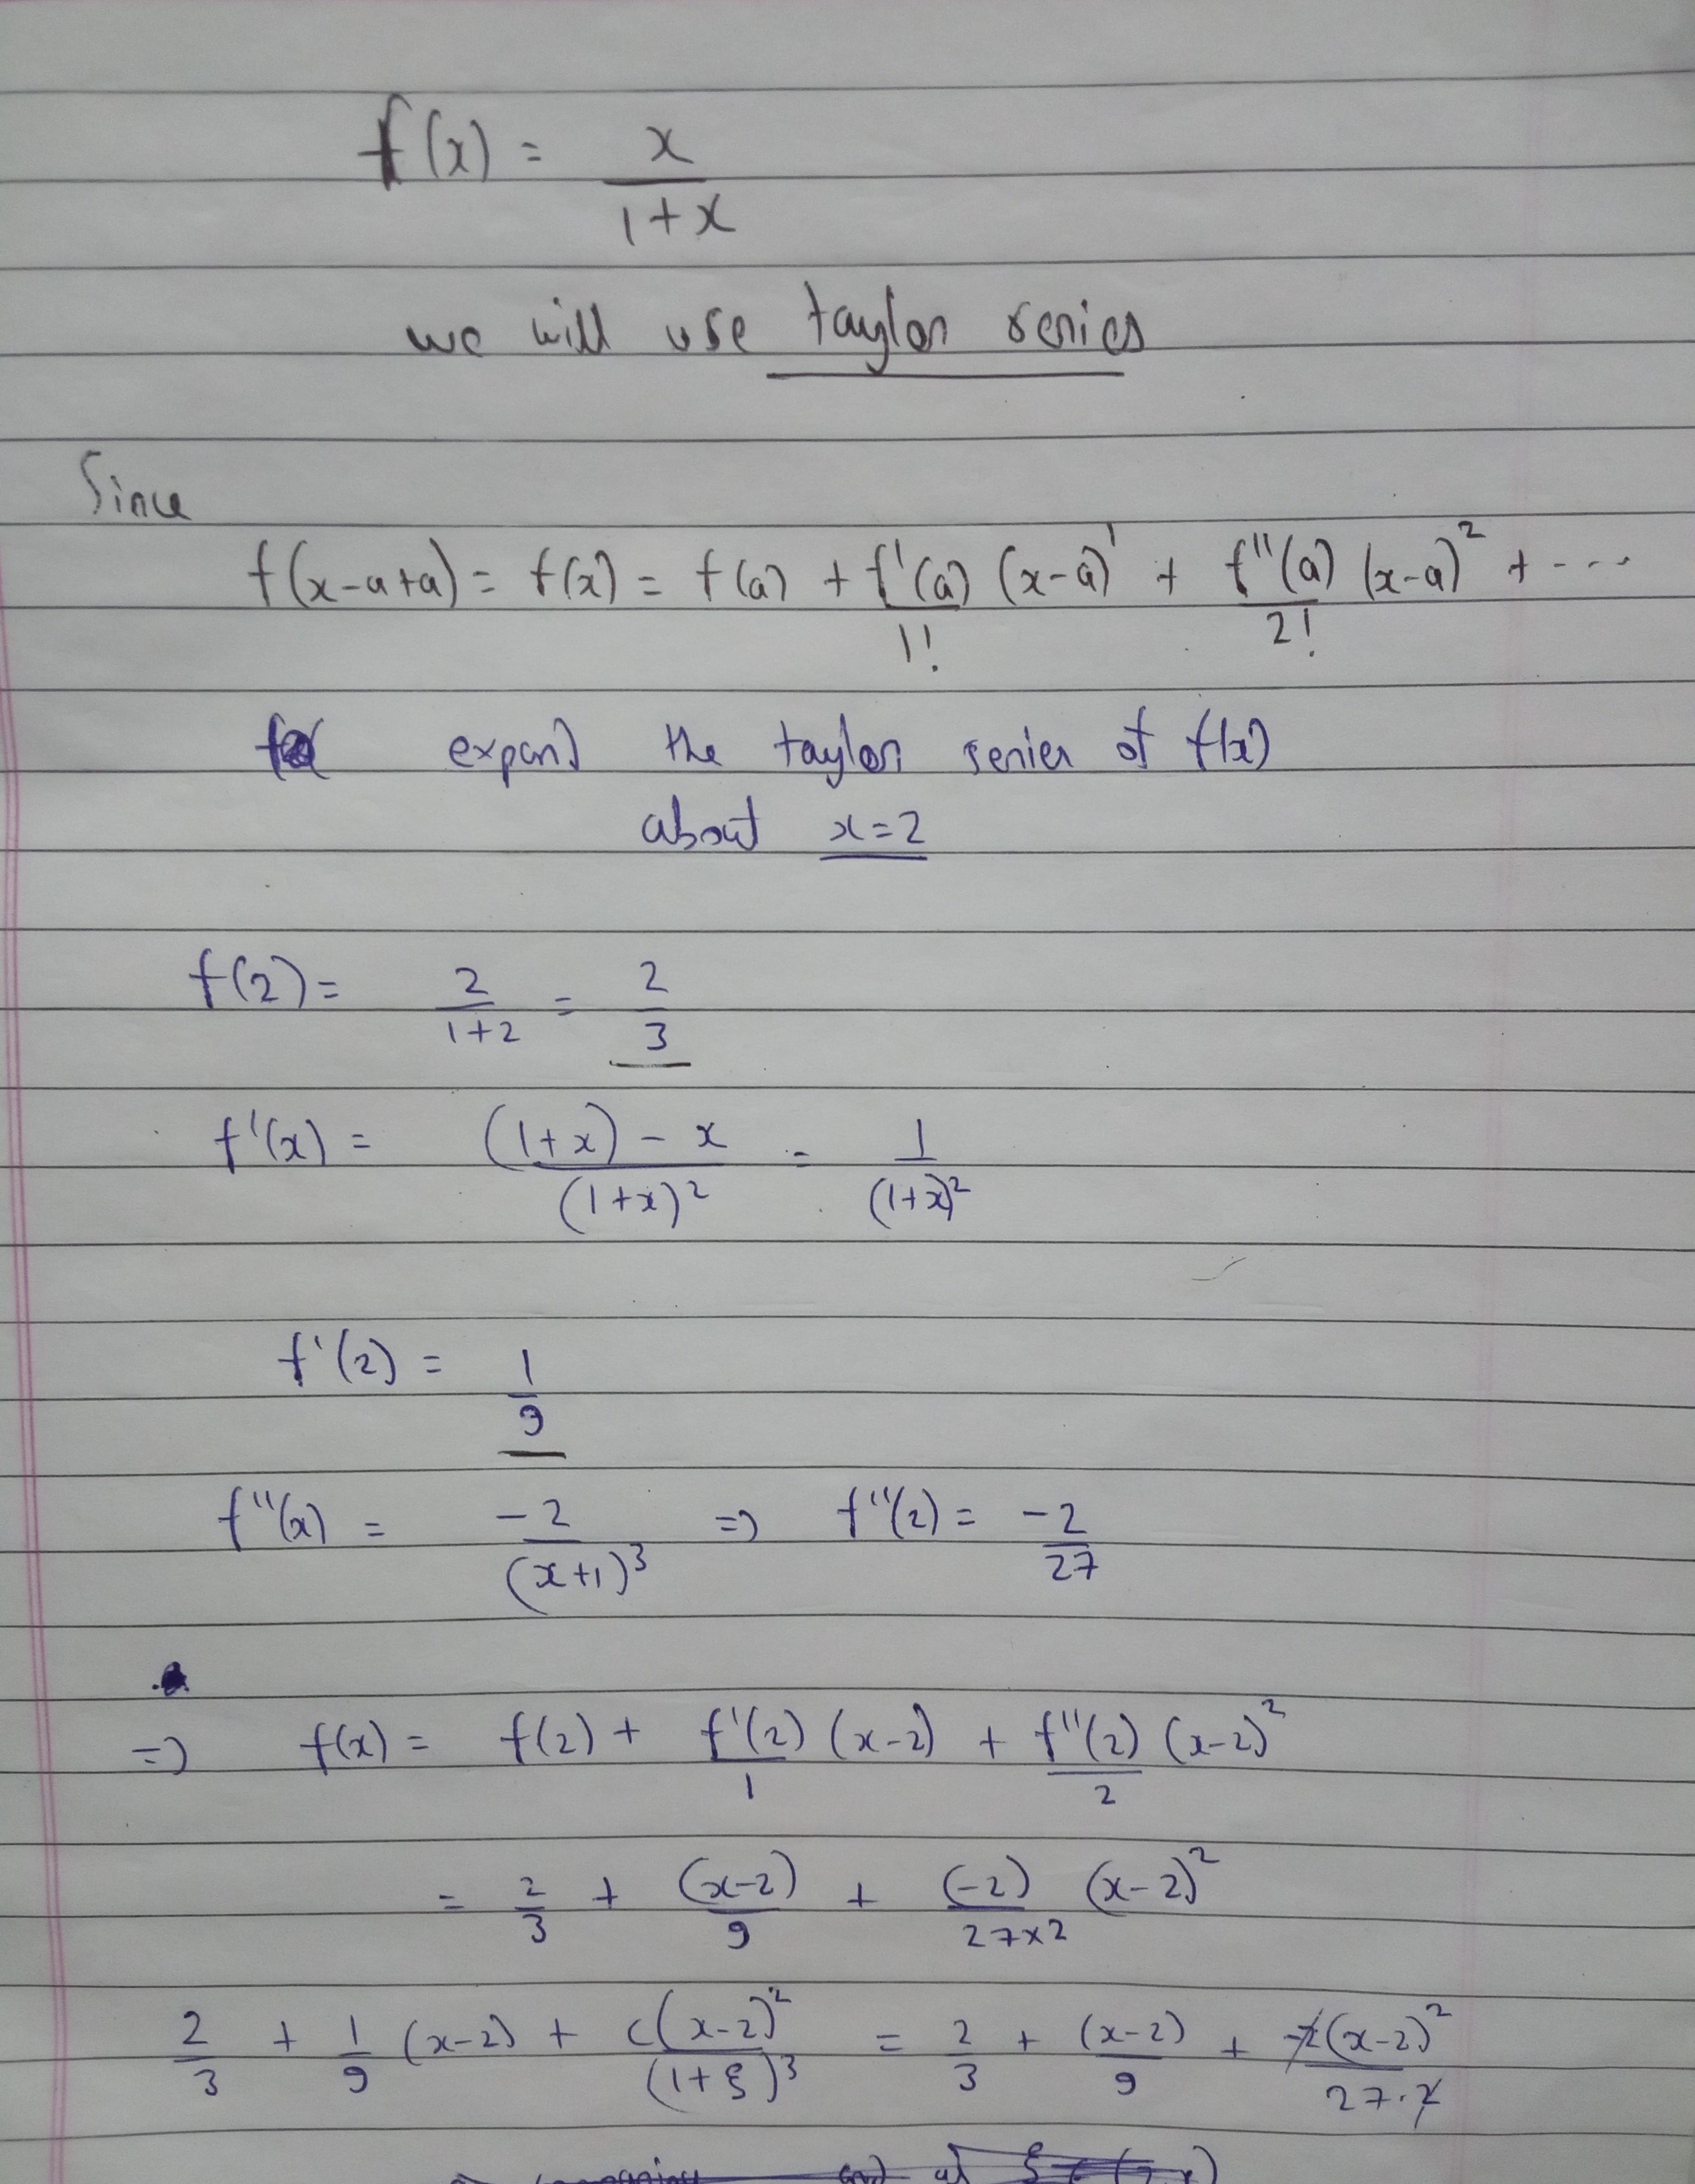 f(x) = x / 1+x
we will use taylor series
Since
f(x-a+a) = f(x) = f(a) + f'(a)/1! (x-a)^1 + f''(a)/2! (x-a)^2 + ----
expand the taylor series of f(x)
about x=2
f(2) = 2/1+2 = 2/3
f'(x) = (1+x) - x / (1+x)^2 = 1/(1+x)^2
f'(2) = 1/9
f''(x) = -2/(x+1)^3 => f''(2) = -2/27
=> f(x) = f(2) + f'(2)/1 (x-2) + f''(2)/2 (x-2)^2
= 2/3 + (x-2)/9 + (-2)/27×2 (x-2)^2
2/3 + 1/9 (x-2) + c(x-2)^2/(1+ξ)^3 = 2/3 + (x-2)/9 + -2(x-2)^2/27.2